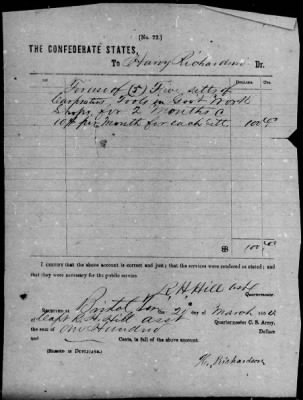 [No. 22.]
THE CONFEDERATE STATES,
To Harry Richardson Dr.
Dollars. Cts.
For use of (5) Five setts of
Carpenters Tools in Govt Work
Shops for 2 Months @
10$ per Month for each sett. 100.00
$ 100.00
I certify that the above account is correct and just; that the services were rendered as stated; and
that they were necessary for the public service.
R. H. Hill
Quartermaster.
Received at Bristol 29 of March
Capt R. H. Hill asst Quartermaster C. S. Army,
the sum of One Hundred Dollars
and Cents, in full of the above account.
(Signed in Duplicate.)
H. Richardson